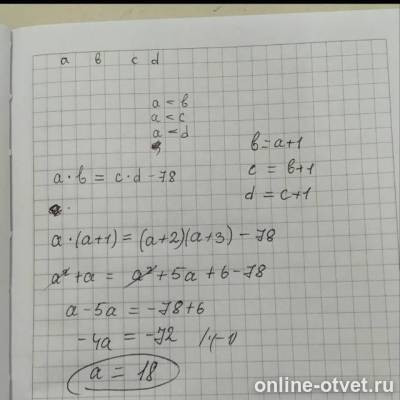 a b c d
a < b
a < c
a < d
b = a+1
a·b = c·d - 78
c = b+1
d = c+1
a·(a+1) = (a+2)(a+3) - 78
a²+a = a²+5a+6-78
a - 5a = -78+6
-4a = -72
a = 18
online-otvet.ru